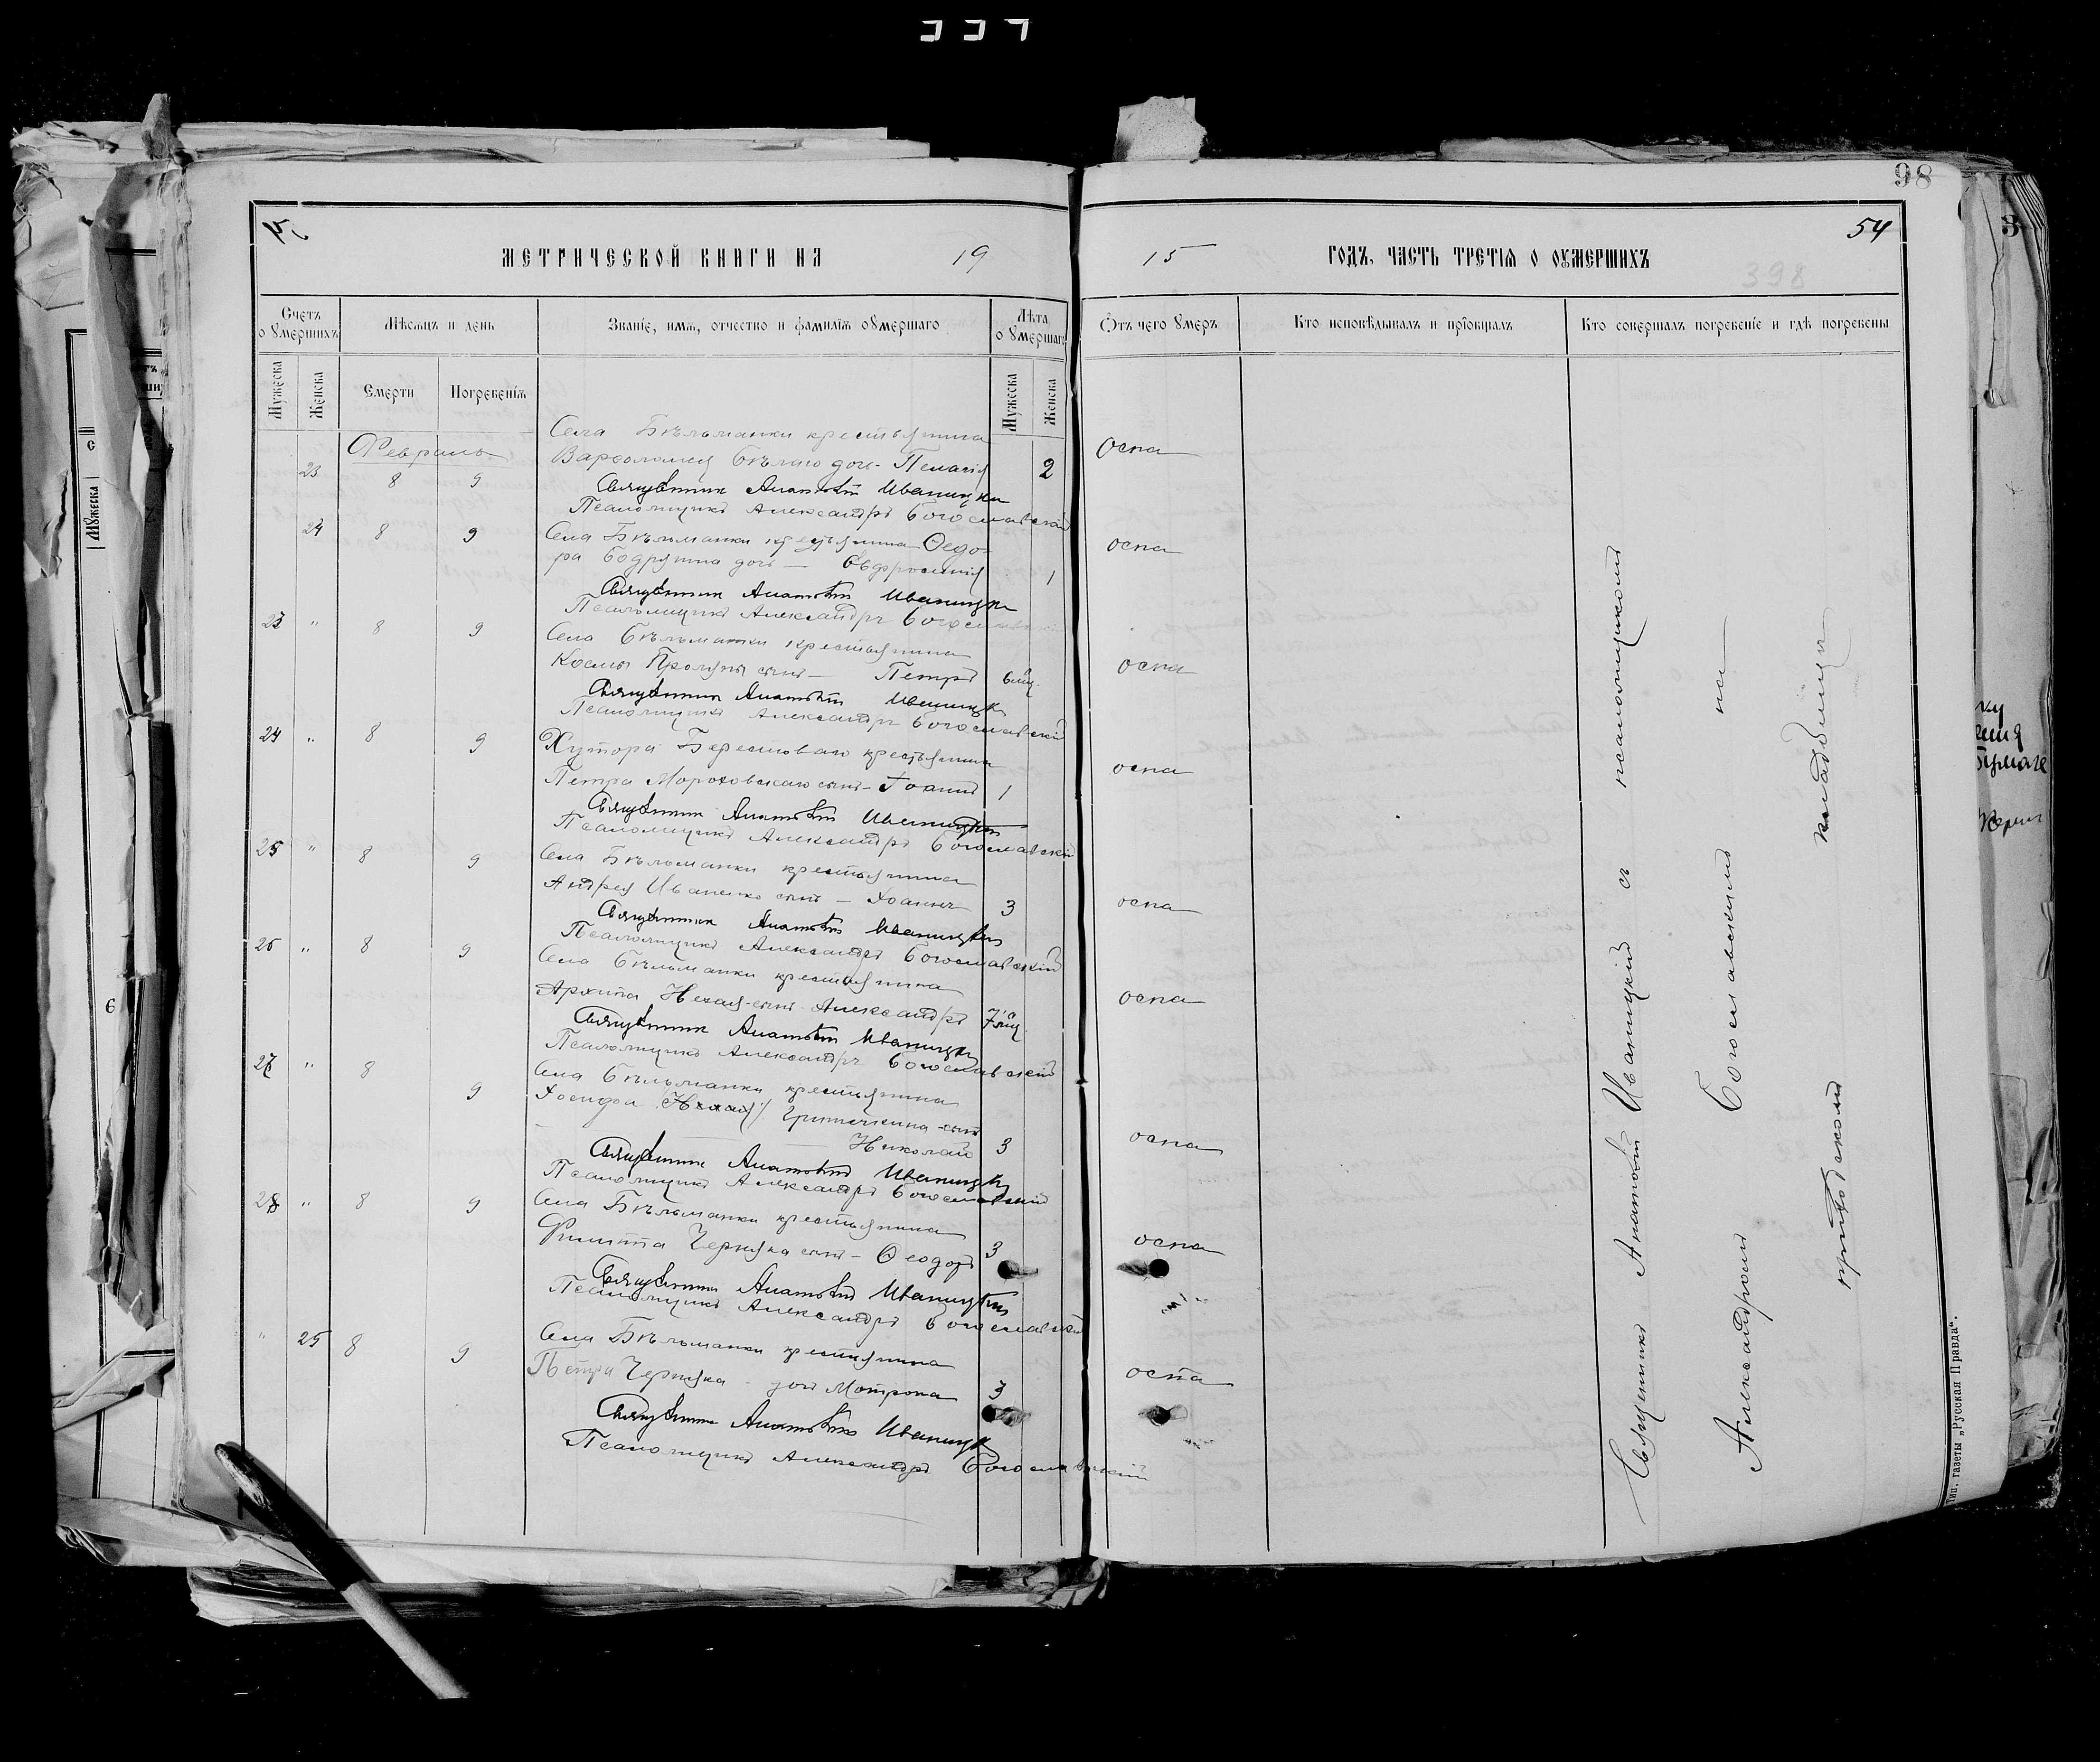 98
54
МЕТРИЧЕСКОЙ КНИГИ НА 1915 ГОДЪ, ЧАСТЬ ТРЕТІЯ О ОУМЕРШИХЪ
398
Счетъ оумершихъ
Мѣсяцъ и день
Званіе, имя, отчество и фамилія оумершаго
Лѣта оумершаго
Отъ чего умеръ
Кто исповѣдывалъ и пріобщалъ
Кто совершалъ погребеніе и гдѣ погребены
Мужеска
Женска
Смерти
Погребенія
Мужеска
Женска
Февраль
Села Бѣльманки крестьянина
23 8 9 Варѳоломея Бѣлаго дочь - Пелагія 2 оспа
Священник Анатолій Иваницкій
Псаломщикъ Александръ Богославскій
24 8 9 Села Бѣльманки крестьянина Ѳедо-
ра Бодряина дочь — Евфросинія 1 оспа
Священник Анатолій Иваницкій
Псаломщикъ Александръ Богославскій
23 " 8 9 Села Бѣльманки крестьянина
Космы сынъ — Петръ 6 мц. оспа
Священник Анатолій Иваницкій
Псаломщикъ Александръ Богославскій
24 " 8 9 Хутора Берестоваго крестьянина
Петра Мороховскаго сынъ - Іоаннъ 1 оспа
Священник Анатолій Иваницкій
Псаломщикъ Александръ Богославскій
25 " 8 9 Села Бѣльманки крестьянина
Андрея Иваненко сынъ — Іоаннъ 3 оспа
Священник Анатолій Иваницкій
Псаломщикъ Александръ Богославскій
26 " 8 9 Села Бѣльманки крестьянина
Архипа Нечая - сынъ Александръ 7 мц. оспа
Священник Анатолій Иваницкій
Псаломщикъ Александръ Богославскій
27 " 8 9 Села Бѣльманки крестьянина
Іосифа сынъ
Николай 3 оспа
Священник Анатолій Иваницкій
Псаломщикъ Александръ Богославскій
28 " 8 9 Села Бѣльманки крестьянина
Филиппа Черняка сынъ - Ѳеодоръ 3 оспа
Священник Анатолій Иваницкій
Псаломщикъ Александръ Богославскій
" 25 8 9 Села Бѣльманки крестьянина
Петра Черняка - дочь Мотрона 3 оспа
Священник Анатолій Иваницкій
Псаломщикъ Александръ Богославскій
Священникъ Анатолій Иваницкій съ псаломщикомъ
Александромъ Богославскимъ на
приходскомъ кладбищѣ
Тип. газеты „Русская Правда“.